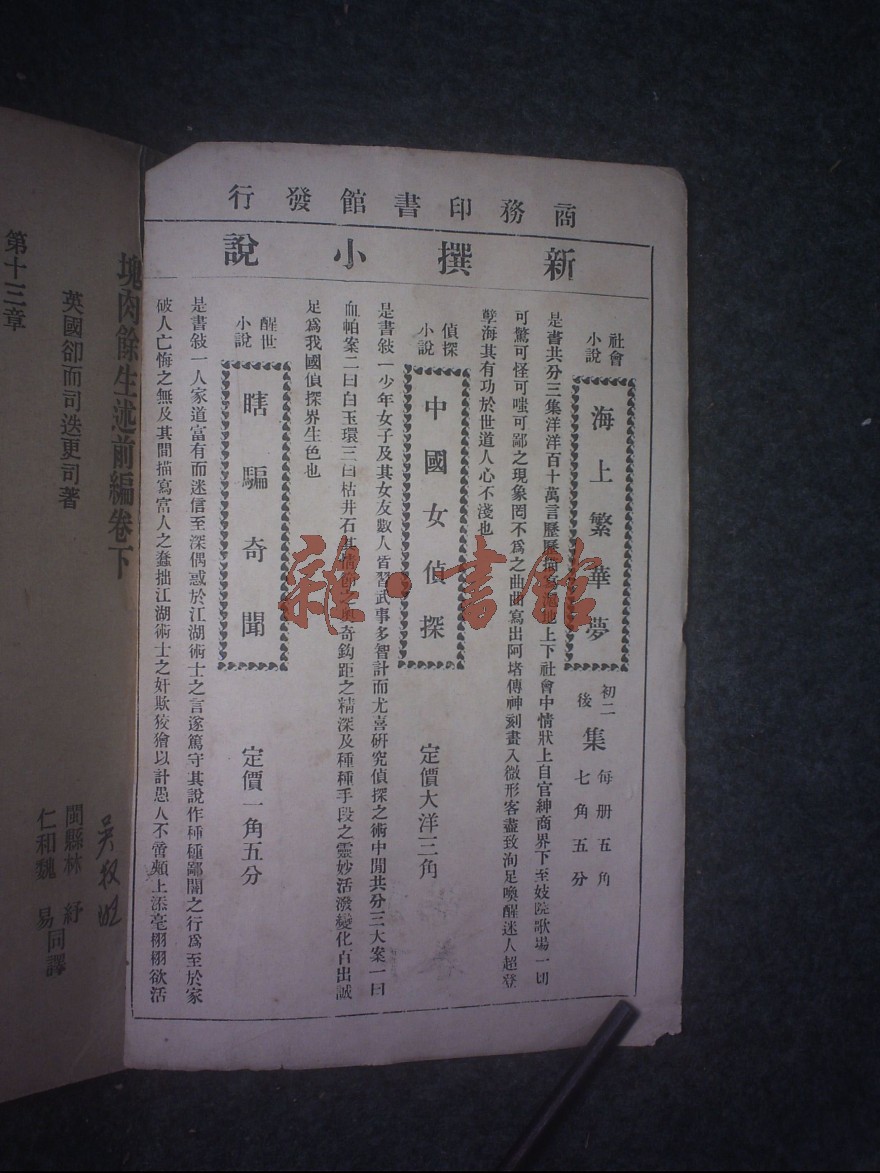 商務印書館發行
新撰小說
社會小說
海上繁華夢
初二後集
每册五角
七角五分
是書共分三集洋洋百十萬言歷歷
上下社會中情狀上自官紳商界下至妓院歌場一切
可驚可怪可嗤可鄙之現象罔不爲之曲曲寫出阿堵傳神刻畫入微形容盡致洵足喚醒迷人超登
孽海其有功於世道人心不淺也
偵探小說
中國女偵探
定價大洋三角
是書敍一少年女子及其女友數人皆習武事多智計而尤喜硏究偵探之術中間共分三大案一曰
血帕案二曰白玉環三曰枯井石其情
奇鈎距之精深及種種手段之靈妙活潑變化百出誠
足爲我國偵探界生色也
醒世小說
瞎騙奇聞
定價一角五分
是書敍一人家道富有而迷信至深偶惑於江湖術士之言遂篤守其說作種種鄙
之行爲至於家
破人亡悔之無及其間描寫富人之蠢拙江湖術士之奸欺狡獪以計愚人不啻頰上添毫栩栩欲活
塊肉餘生述前編卷下
英國卻而司迭更司著
閩縣林紓
仁和魏易同譯
第十三章
雜·書館